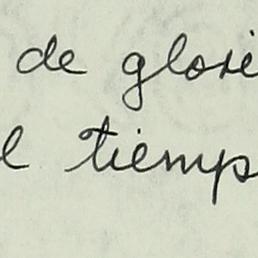 de glori
l tiemp